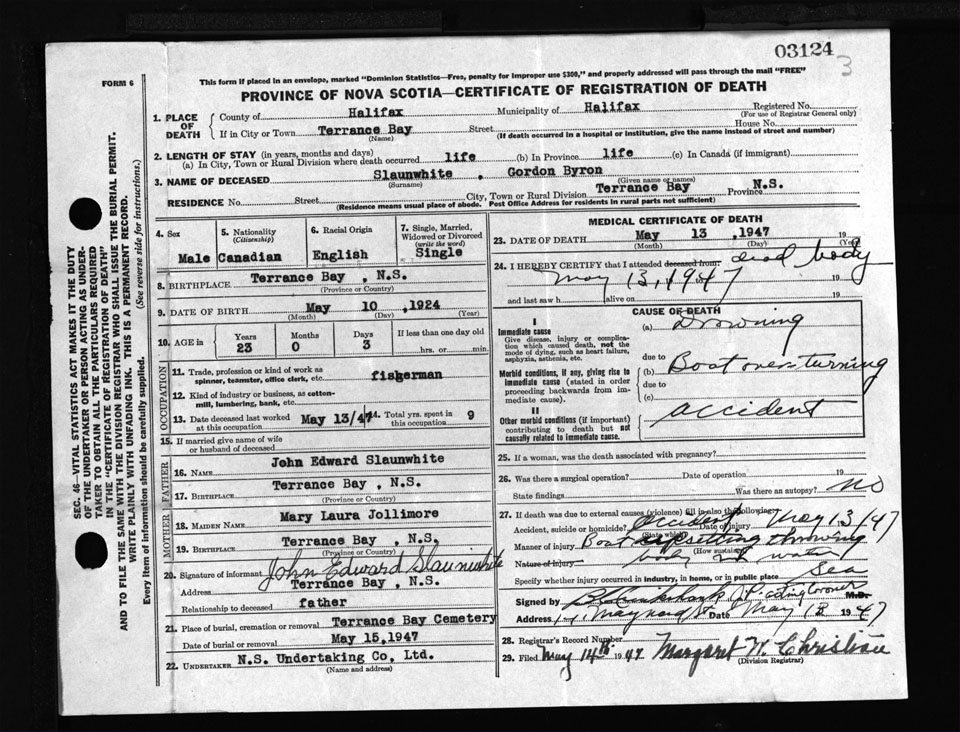 03124
3
FORM 6
This form if placed in an envelope, marked "Dominion Statistics—Free, penalty for improper use $300," and properly addressed will pass through the mail "FREE"
PROVINCE OF NOVA SCOTIA—CERTIFICATE OF REGISTRATION OF DEATH
1. PLACE OF DEATH
County of Halifax Municipality of Halifax Registered No.
(For use of Registrar General only)
If in City or Town Terrance Bay Street House No.
(Name) (If death occurred in a hospital or institution, give the name instead of street and number)
2. LENGTH OF STAY (in years, months and days)
(a) In City, Town or Rural Division where death occurred life (b) In Province life (c) In Canada (if immigrant)
3. NAME OF DECEASED Slaunwhite , Gordon Byron
(Surname) (Given name or names)
RESIDENCE No. Street City, Town or Rural Division Terrance Bay Province N.S.
(Residence means usual place of abode. Post Office Address for residents in rural parts not sufficient)
4. Sex
Male
5. Nationality
(Citizenship)
Canadian
6. Racial Origin
English
7. Single, Married, Widowed or Divorced
(write the word)
Single
8. BIRTHPLACE Terrance Bay , N.S.
(Province or Country)
9. DATE OF BIRTH May 10 , 1924
(Month) (Day) (Year)
10. AGE in
Years Months Days If less than one day old
23 0 3 hrs. or min.
OCCUPATION
11. Trade, profession or kind of work as spinner, teamster, office clerk, etc. fisherman
12. Kind of industry or business, as cotton-mill, lumbering, bank, etc.
13. Date deceased last worked at this occupation May 13/47
14. Total yrs. spent in this occupation 9
15. If married give name of wife or husband of deceased
FATHER
16. NAME John Edward Slaunwhite
17. BIRTHPLACE Terrance Bay , N.S.
(Province or Country)
MOTHER
18. MAIDEN NAME Mary Laura Jollimore
19. BIRTHPLACE Terrance Bay , N.S.
(Province or Country)
20. Signature of informant John Edward Slaunwhite
Address Terrance Bay , N.S.
Relationship to deceased father
21. Place of burial, cremation or removal Terrance Bay Cemetery
Date of burial or removal May 15,1947
22. UNDERTAKER N.S. Undertaking Co, Ltd.
(Name and address)
MEDICAL CERTIFICATE OF DEATH
23. DATE OF DEATH May 13 ,1947 19
(Month) (Day) (Year)
24. I HEREBY CERTIFY that I attended deceased from: dead body
May 13, 1947 19
and last saw h alive on 19
CAUSE OF DEATH
I
Immediate cause
Give disease, injury or complication which caused death, not the mode of dying, such as heart failure, asphyxia, asthenia, etc.
(a) Drowning
due to
Morbid conditions, if any, giving rise to immediate cause (stated in order proceeding backwards from immediate cause).
(b) Boat overturning
due to
(c)
II
Other morbid conditions (if important) contributing to death but not causally related to immediate cause.
accident
25. If a woman, was the death associated with pregnancy?
26. Was there a surgical operation? Date of operation 19
State findings Was there an autopsy? no
27. If death was due to external causes (violence) fill in also the following:
Accident, suicide or homicide? accident Date of injury May 13/47
(State which)
Manner of injury Boat upsetting throwing
(How sustained)
Nature of injury body into water
Specify whether injury occurred in industry, in home, or in public place Sea
Signed by acting Coroner M.D.
Address Maynard St Date May 13 1947
28. Registrar's Record Number
29. Filed May 14th 1947 Margaret W. Christian
(Division Registrar)
SEC. 46—VITAL STATISTICS ACT MAKES IT THE DUTY
OF THE UNDERTAKER OR PERSON ACTING AS UNDER-
TAKER TO OBTAIN ALL THE PARTICULARS REQUIRED
IN THE "CERTIFICATE OF REGISTRATION OF DEATH"
AND TO FILE THE SAME WITH THE DIVISION REGISTRAR WHO SHALL ISSUE THE BURIAL PERMIT.
WRITE PLAINLY WITH UNFADING INK. THIS IS A PERMANENT RECORD.
Every item of information should be carefully supplied. (See reverse side for instructions.)